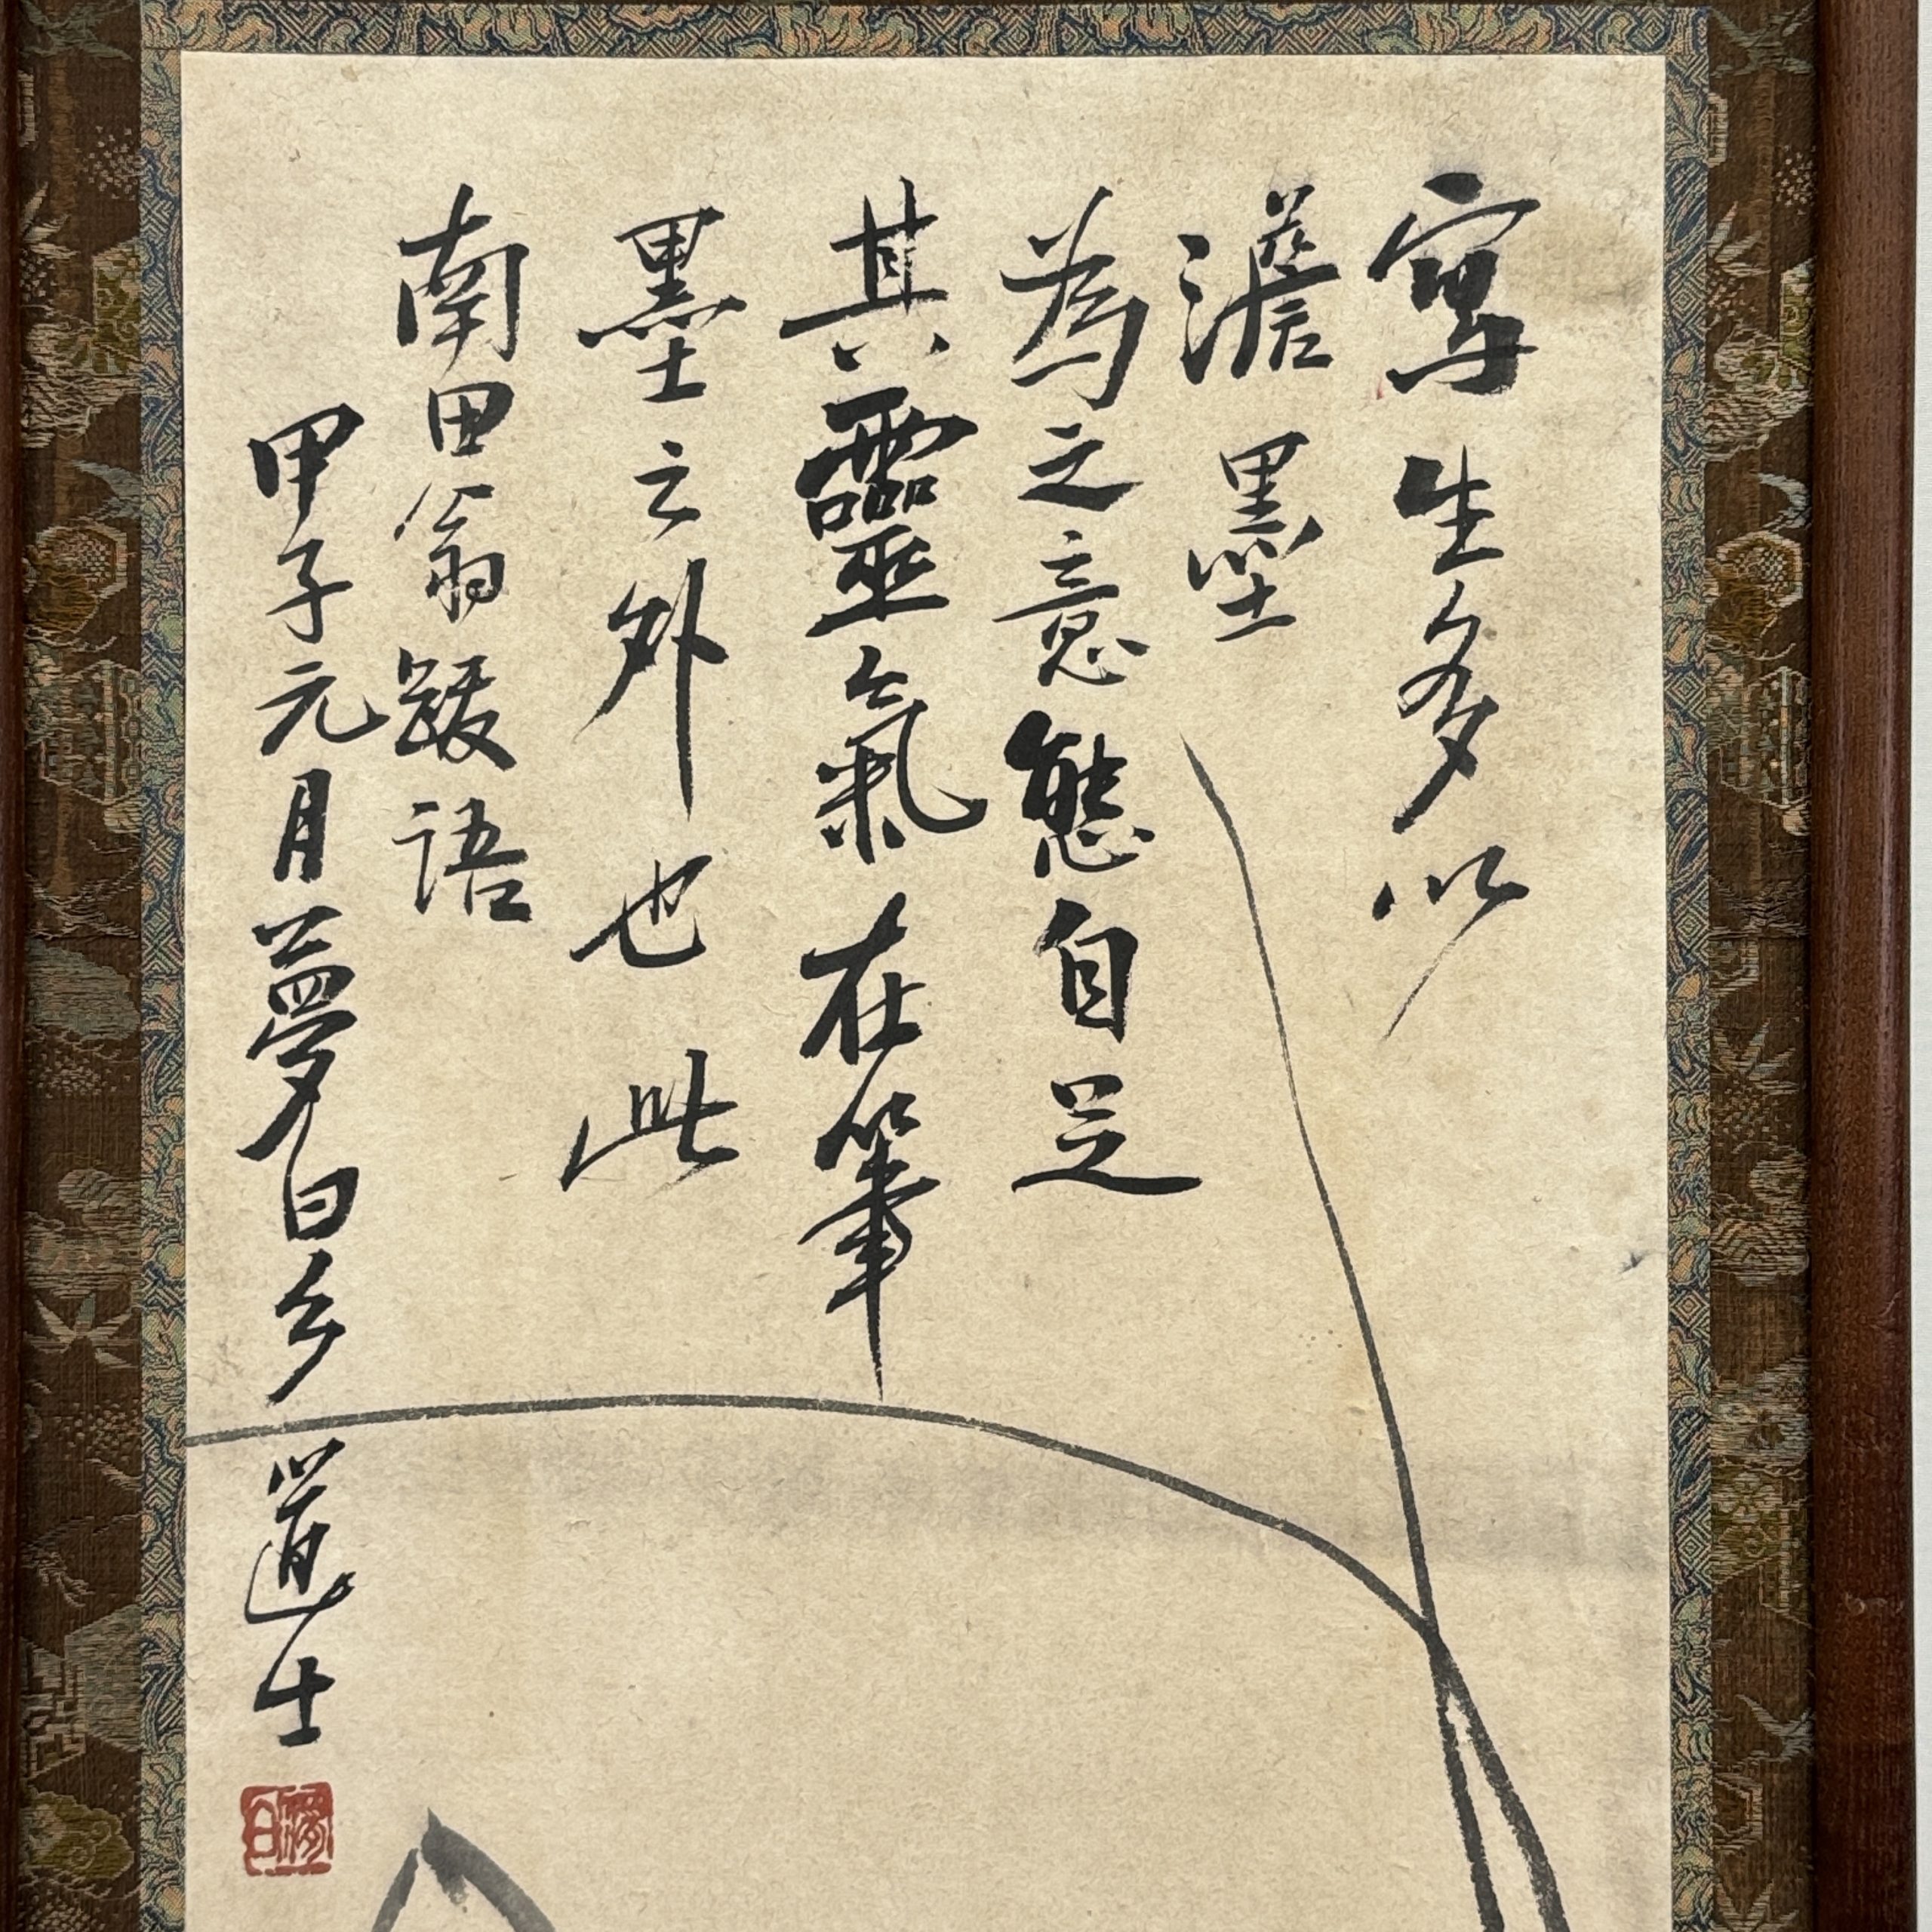 寫生多以
澹墨
為之意態自足
其靈氣在筆
墨之外也此
南田翁跋語
甲子元月夢白多道士